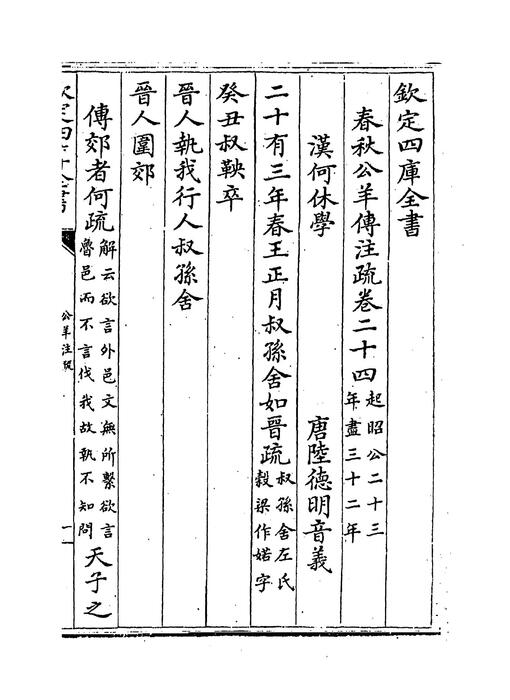 欽定四庫全書
春秋公羊傳注疏卷二十四起昭公二十三年盡三十二年
漢何休學　唐陸德明音義
二十有三年春王正月叔孫舍如晉疏叔孫舍左氏穀梁作婼字
癸丑叔鞅卒
晉人執我行人叔孫舍
晉人圍郊
傳郊者何疏解云欲言外邑文無所繫欲言魯邑而不言伐我故執不知問天子之
欽定四庫全書
公羊注疏
一